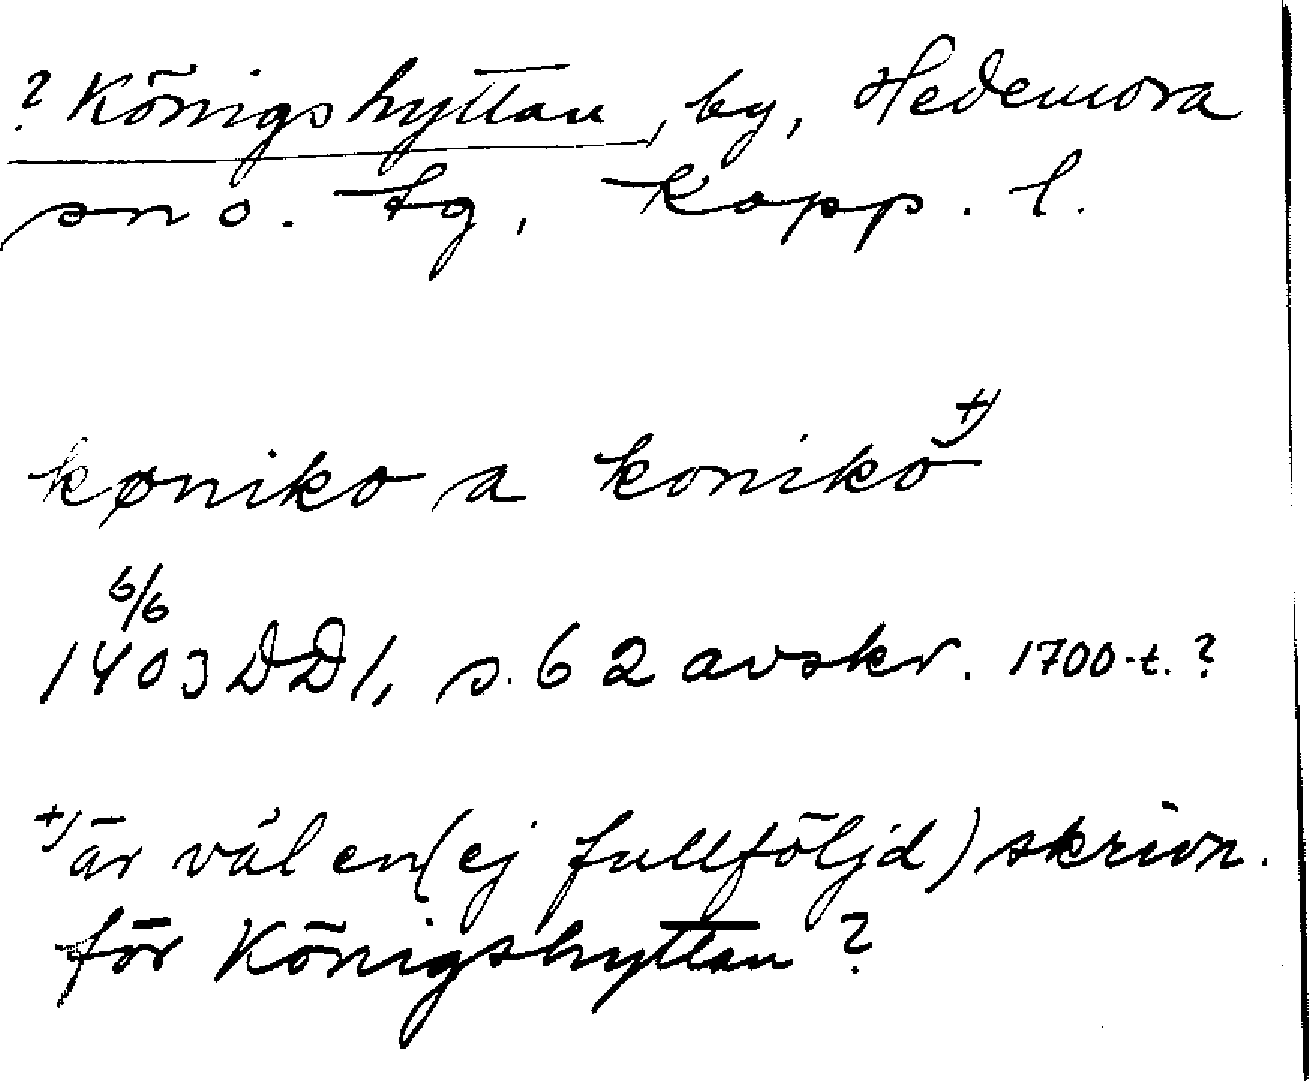 ? Königshyttan, by, Hedemora
sn o. tg, Kopp. l.
køniko a koniko +)
6/6
1403 DD1, s. 62 avskr. 1700-t. ?
+) är väl en (ej fullföljd) skrivn.
för Königshyttan ?